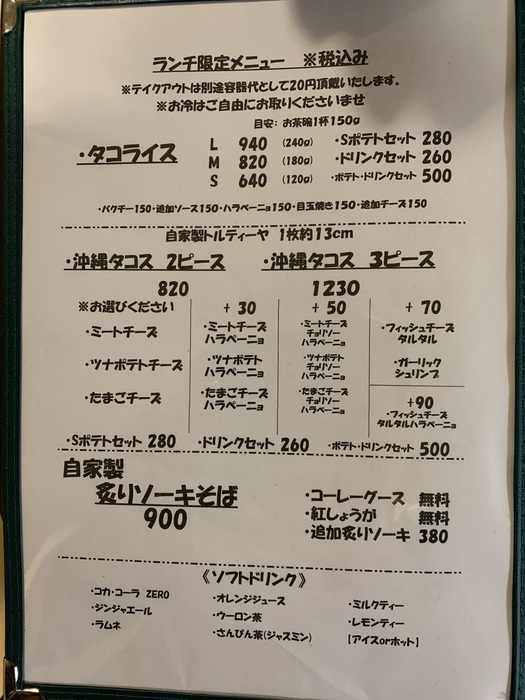 ランチ限定メニュー ※税込み
※テイクアウトは別途容器代として20円頂戴いたします。
※お冷はご自由にお取りくださいませ
目安: お茶碗1杯150g
・タコライス
L 940 (240g) ・Sポテトセット 280
M 820 (180g) ・ドリンクセット 260
S 640 (120g) ・ポテト・ドリンクセット 500
・パクチー150・追加ソース150・ハラペーニョ150・目玉焼き150・追加チーズ150
自家製トルティーヤ 1枚約13cm
・沖縄タコス 2ピース ・沖縄タコス 3ピース
820 1230
※お選びください
・ミートチーズ
・ツナポテトチーズ
・たまごチーズ
+30
・ミートチーズ
ハラペーニョ
・ツナポテト
ハラペーニョ
・たまごチーズ
ハラペーニョ
+50
・ミートチーズ
チョリソー
ハラペーニョ
・ツナポテト
チョリソー
ハラペーニョ
・たまごチーズ
チョリソー
ハラペーニョ
+70
・フィッシュチーズ
タルタル
・ガーリック
シュリンプ
+90
・フィッシュチーズ
タルタルハラペーニョ
・Sポテトセット 280 ・ドリンクセット 260 ・ポテト・ドリンクセット 500
自家製
炙りソーキそば
900
・コーレーグース 無料
・紅しょうが 無料
・追加炙りソーキ 380
《ソフトドリンク》
・コカ・コーラ ZERO
・ジンジャエール
・ラムネ
・オレンジジュース
・ウーロン茶
・さんぴん茶(ジャスミン)
・ミルクティー
・レモンティー
[アイスorホット]